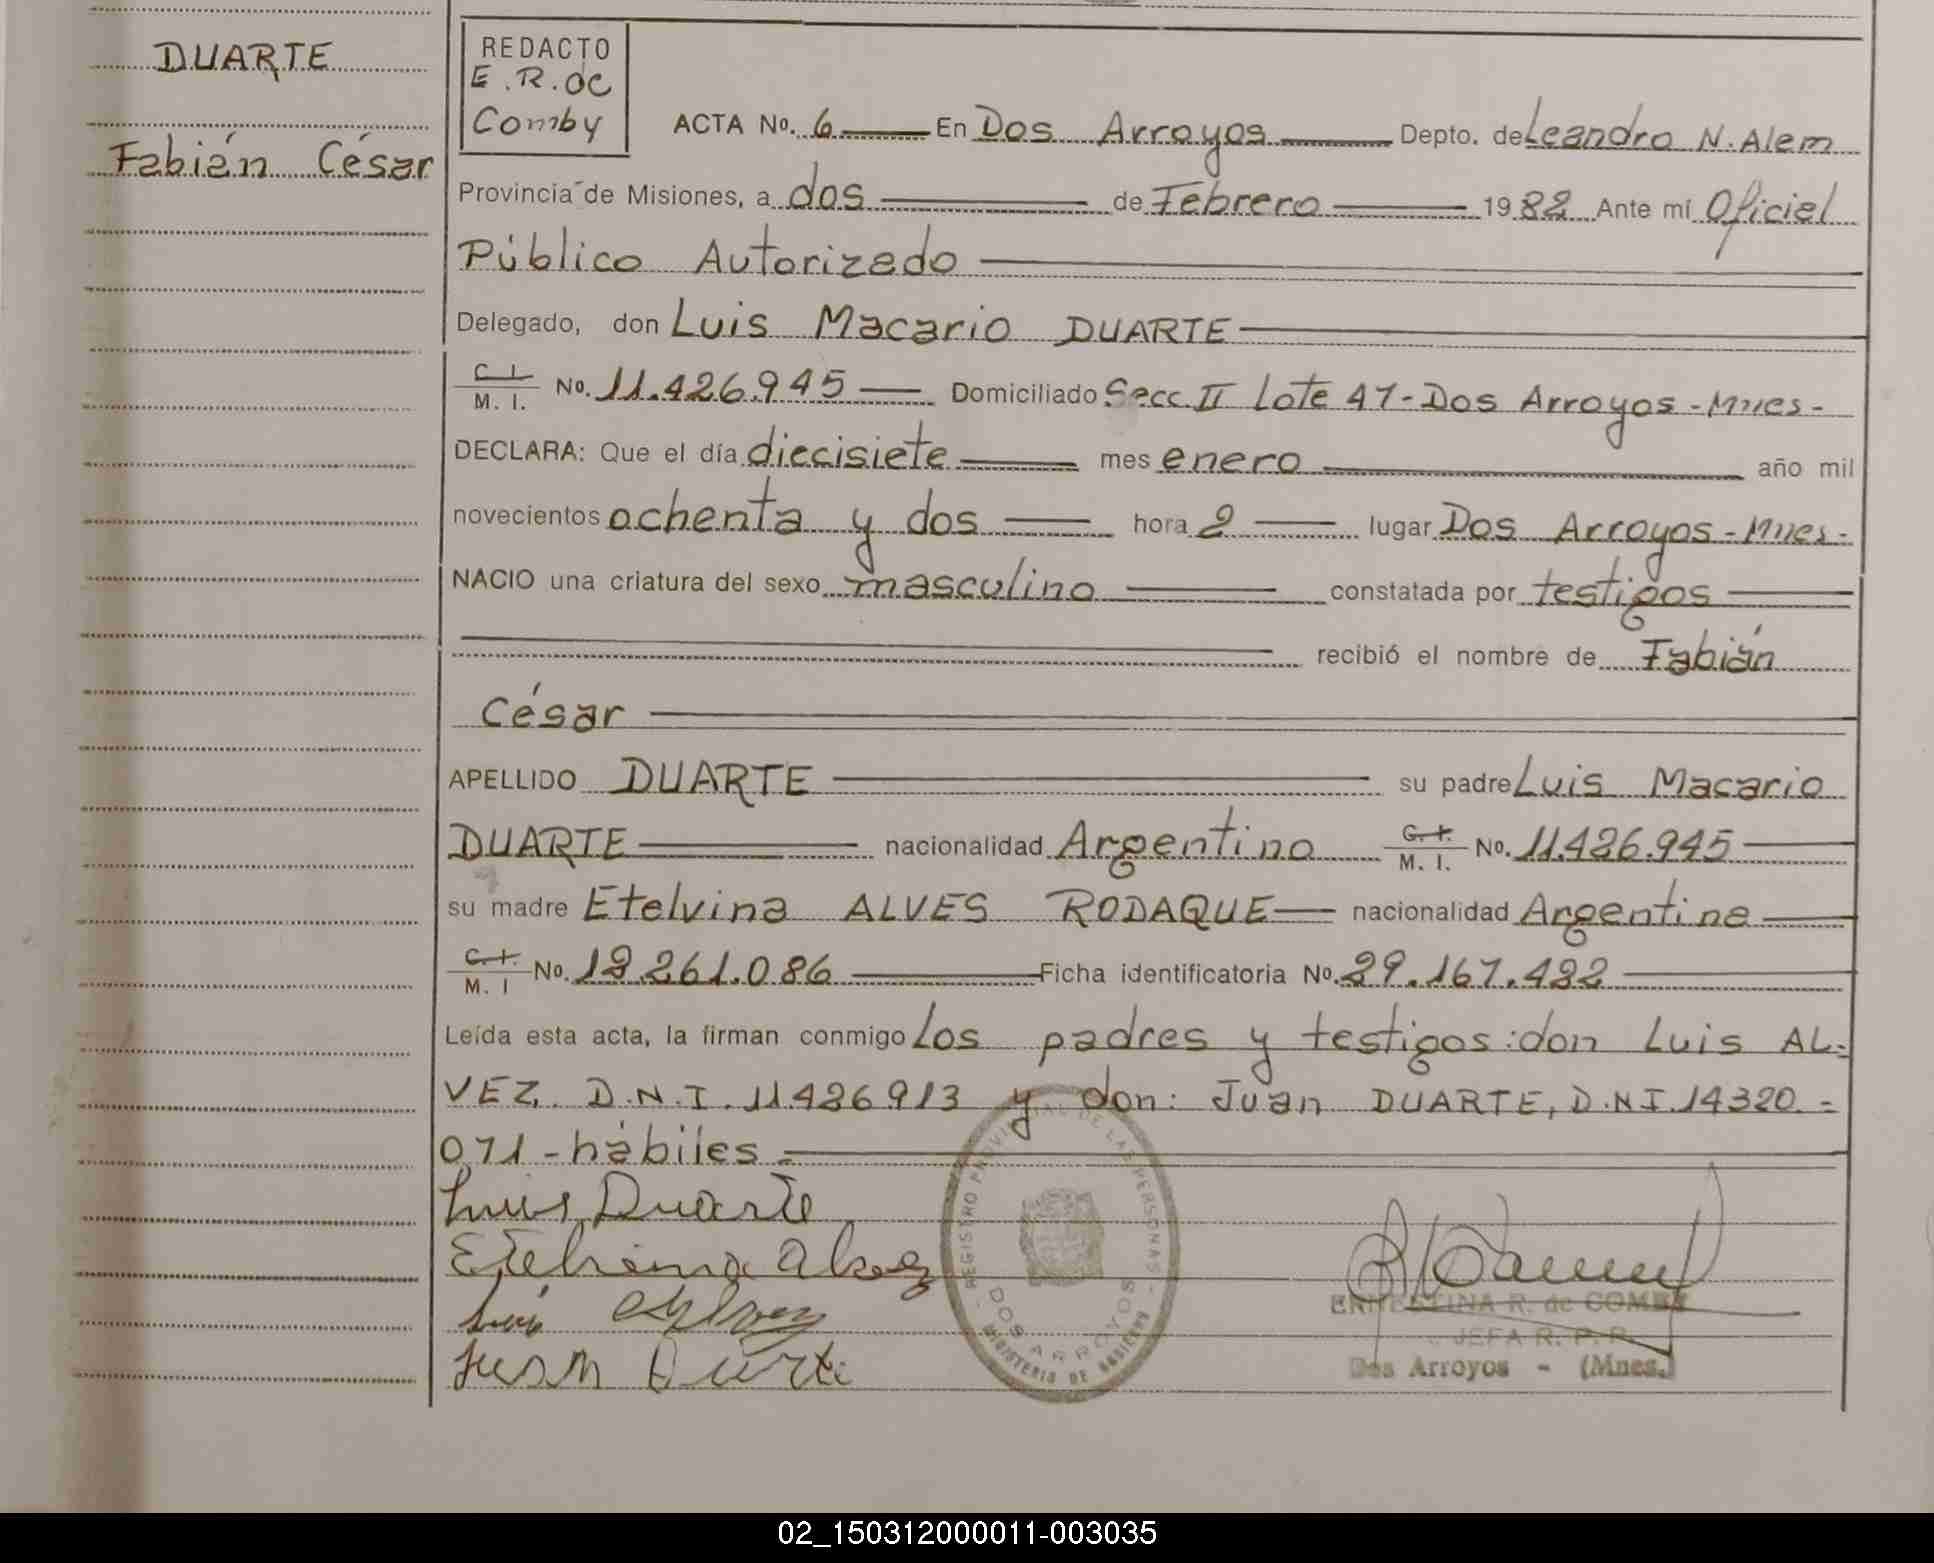 DUARTE
Fabián César
REDACTO
E.R. de
Comby
ACTA No. 6 En Dos Arroyos Depto. de Leandro N. Alem
Provincia de Misiones, a dos de Febrero 1982 Ante mí Oficial
Público Autorizado
Delegado, don Luis Macario DUARTE
C. I.
M. I. No. 11.426.945 Domiciliado Secc. II Lote 47 - Dos Arroyos - Mnes -
DECLARA: Que el día diecisiete mes enero año mil
novecientos ochenta y dos hora 2 lugar Dos Arroyos - Mnes -
NACIO una criatura del sexo masculino constatada por testigos
recibió el nombre de Fabián
César
APELLIDO DUARTE su padre Luis Macario
DUARTE nacionalidad Argentino C. I.
M. I. No. 11.426.945
su madre Etelvina ALVES RODAQUE nacionalidad Argentina
C. I.
M. I No. 12.261.086 Ficha identificatoria No. 29.167.422
Leída esta acta, la firman conmigo los padres y testigos: don Luis AL-
VEZ, D.N.I. 11426913 y don: Juan DUARTE, D.N.I. 14320.=
071 - hábiles.=
Luis Duarte
Etelvina Alvez
Luis Alvez
Juan Duarte
REGISTRO PROVINCIAL DE LAS PERSONAS
DOS ARROYOS
MINISTERIO DE GOBIERNO
ERNESTINA R. de COMBY
JEFA R. P. P.
Dos Arroyos - (Mnes.)
02_150312000011-003035